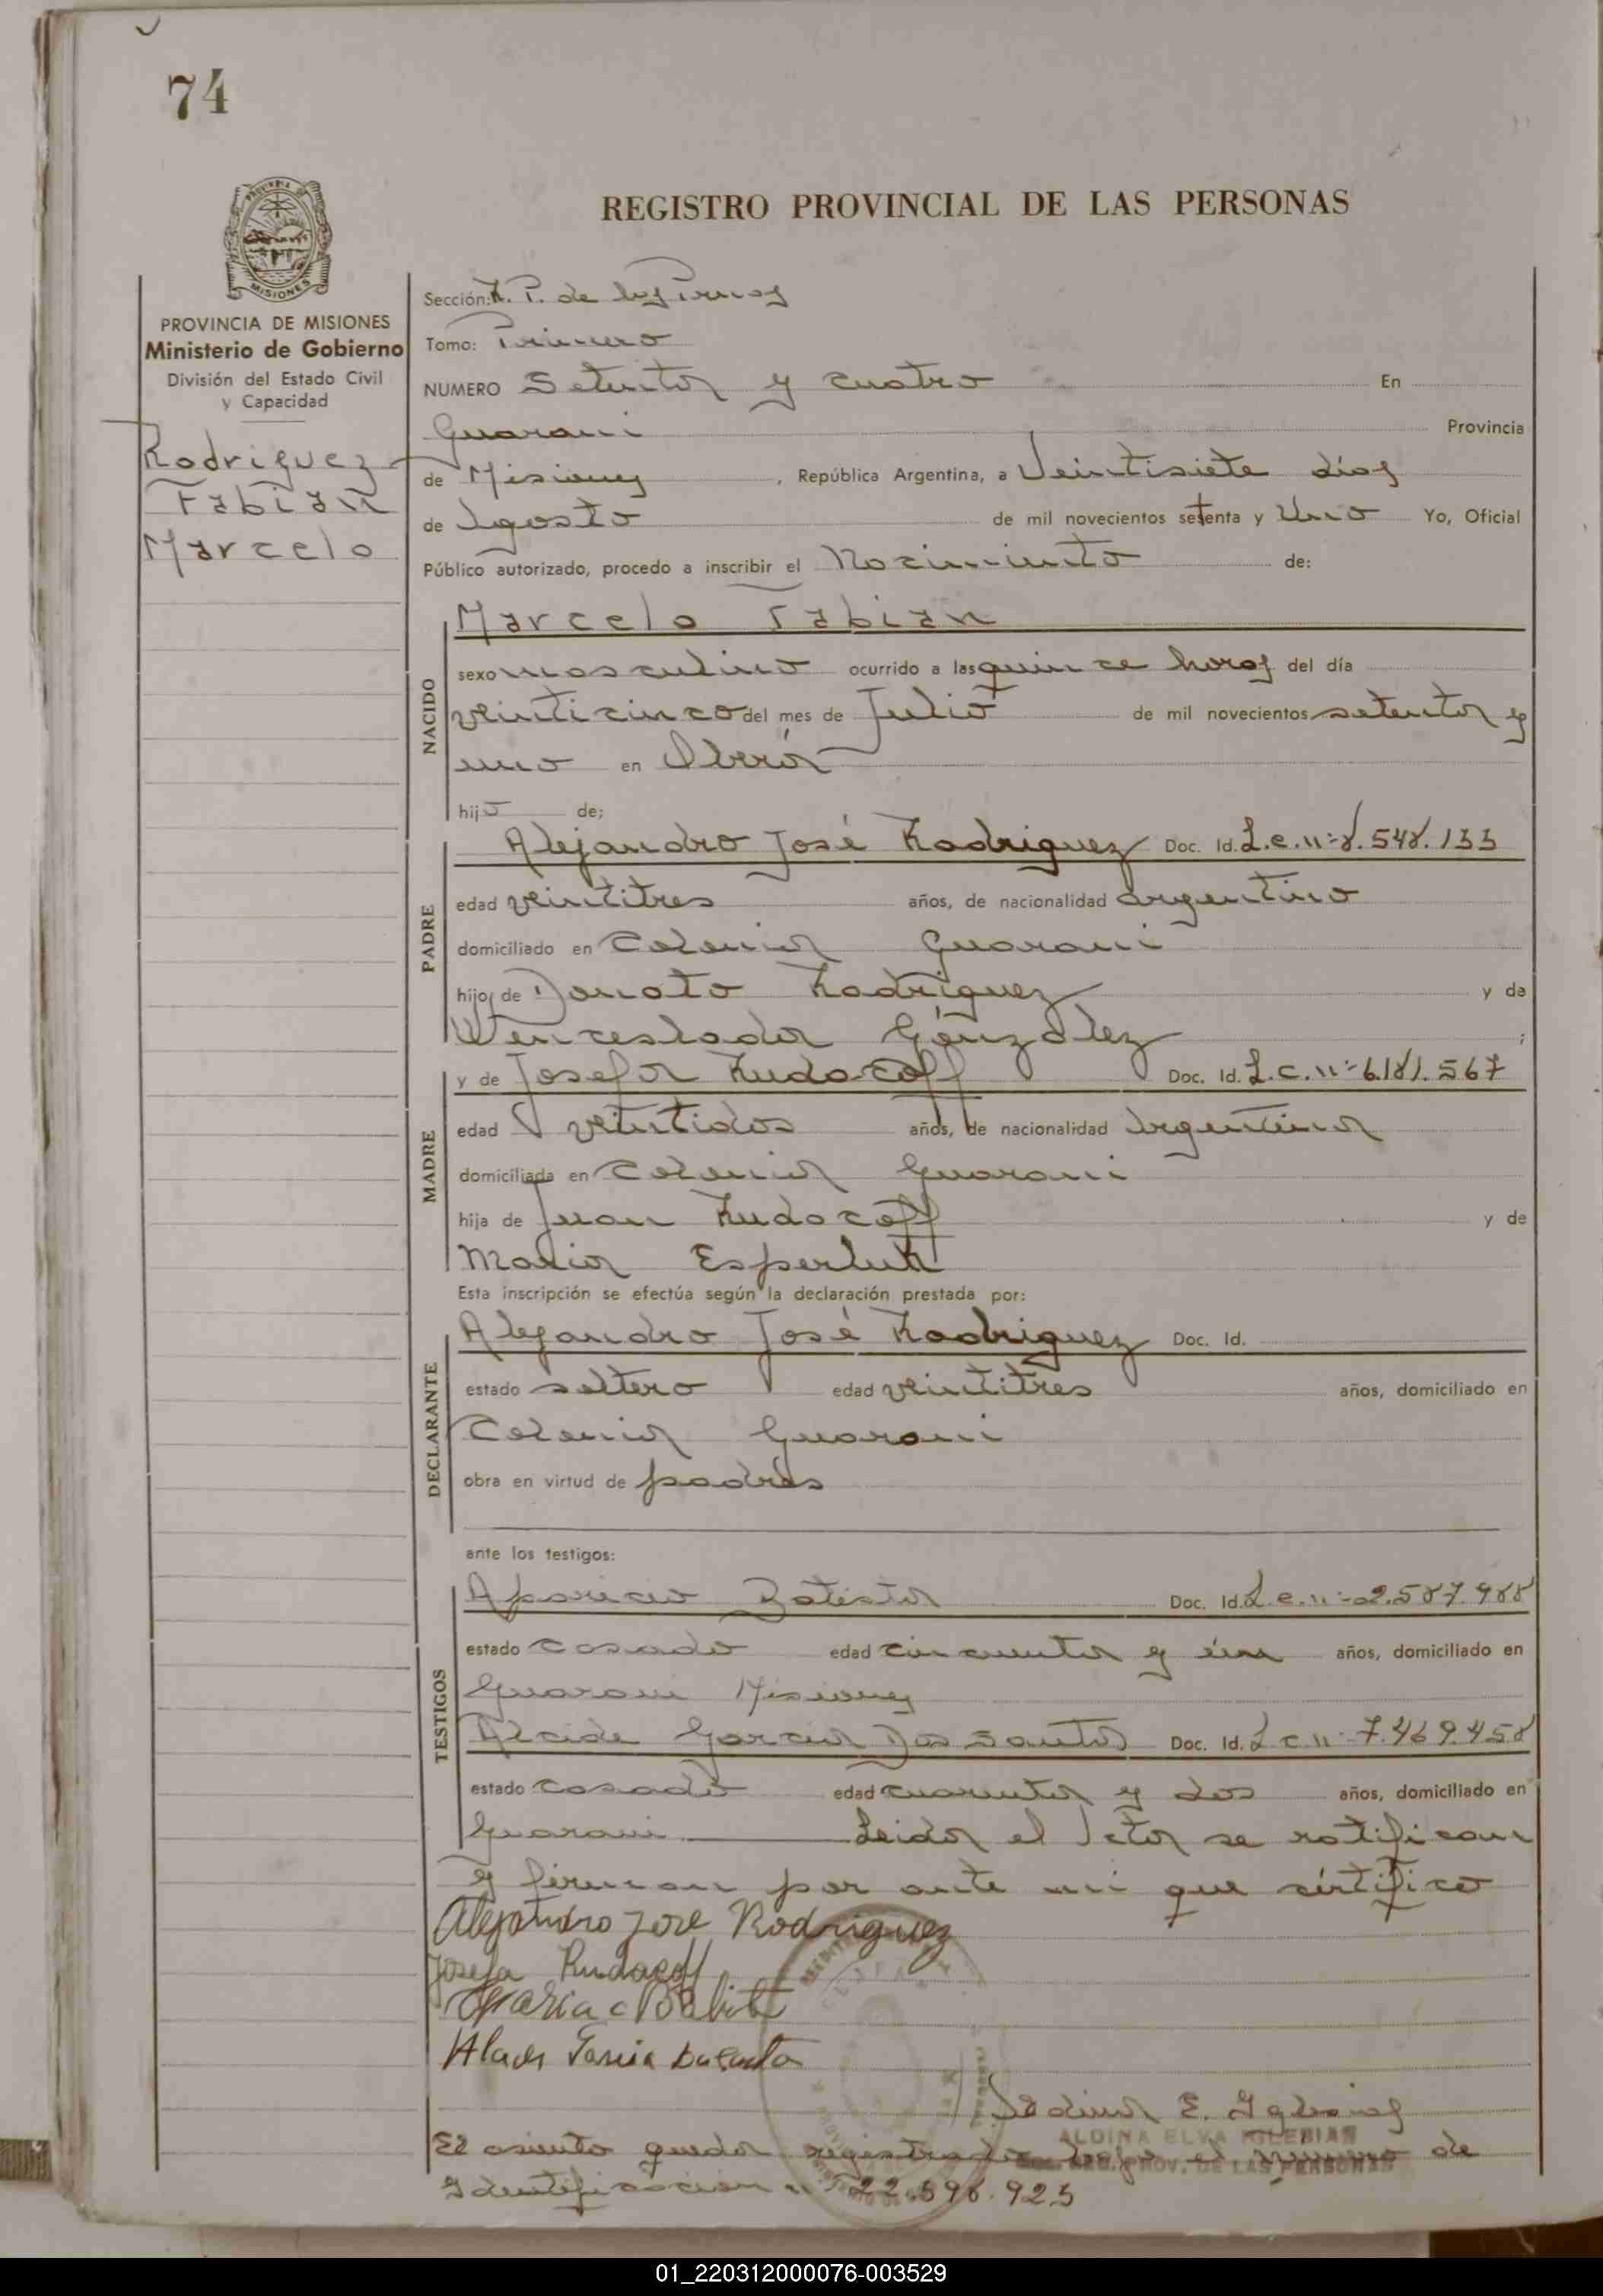 74
REGISTRO PROVINCIAL DE LAS PERSONAS
PROVINCIA DE
MISIONES
PROVINCIA DE MISIONES
Ministerio de Gobierno
División del Estado Civil
y Capacidad
Rodriguez
Fabian
Marcelo
Sección: R. P. de las
Tomo: Primero
NUMERO Setenta y cuatro En
Guarani Provincia
de Misiones, República Argentina, a Veintisiete días
de Agosto de mil novecientos setenta y Uno Yo, Oficial
Público autorizado, procedo a inscribir el Nacimiento de:
NACIDO
Marcelo Fabian
sexo masculino ocurrido a las quince horas del día
veinticinco del mes de Julio de mil novecientos setenta y
uno en Oberá
hijo de;
PADRE
Alejandro José Rodriguez Doc. Id. L.e.n:-8.548.133
edad veintitres años, de nacionalidad argentino
domiciliado en Colonia Guarani
hijo de Donato Rodriguez y de
Wenceslada Gónzalez ;
MADRE
y de Josefa Rudacoff Doc. Id. L.C.n:-6.181.567
edad veintidos años, de nacionalidad Argentina
domiciliada en Colonia Guarani
hija de Juan Rudacoff y de
Maria Esperluk
Esta inscripción se efectúa según la declaración prestada por:
DECLARANTE
Alejandro José Rodriguez Doc. Id.
estado soltero edad veintitres años, domiciliado en
Colonia Guarani
obra en virtud de padres
ante los testigos:
TESTIGOS
Aparicio Batista Doc. Id. L.e.n:-2.587.988
estado casado edad cincuenta y un años, domiciliado en
Guarani Misiones
Alcide Garcia Dos Santos Doc. Id. L e n:-7.469.458
estado casado edad cuarenta y dos años, domiciliado en
Guarani Leida el Acta se ratifican
y firman por ante mi que certifico
Alejandro José Rodriguez
Josefa Rudacoff
Alcides Garcia
Aldina E. Iglesias
ALDINA ELVA IGLESIAS
PROV. DE LAS PERSONAS
El asiento queda registrado bajo el número de
Identificacion n: 22.596.923
01_220312000076-003529